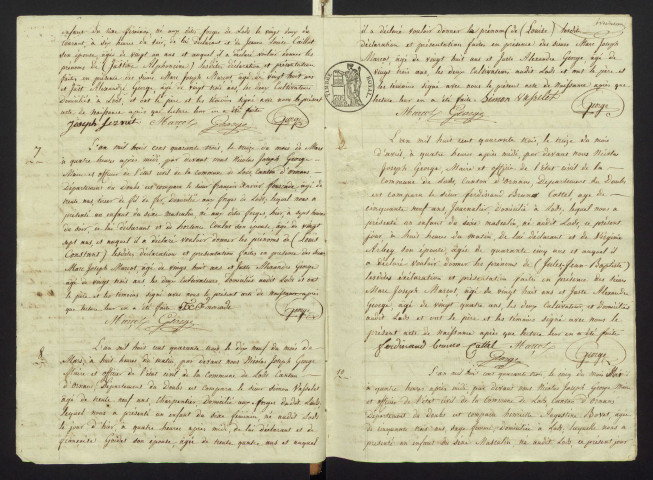 enfant du sexe féminin, né aux dites forges de Lods le vingt cinq du
courant, à six heures du soir, de lui déclarant et de Jeanne Louise Caillet
son épouse, âgée de vingt ans et auquel il a déclaré vouloir donner les
prénoms de (Justine Alphonsine) lesdites déclaration et présentation
faites en présence des sieurs Marc Joseph Marcot, âgé de vingt huit ans
et Juste Alexandre George, âgé de vingt trois ans, les deux Cultivateurs
domiciliés à Lods, et ont le père et les témoins signé avec nous le présent
acte de naissance après que lecture leur en a été faite
Marcot George George
L'an mil huit cent quarante trois, le seize du mois de Mars
à quatre heures après midi, par devant nous Nicolas Joseph George
Maire et officier de l'état civil de la commune de Lods, Canton d'Ornans
département du Doubs est comparu le sieur françois Xavier âgé de
trente ans, de fil de fer, domicilié aux forges de Lods, lequel nous a
présenté un enfant du sexe masculin né aux dites forges hier à sept heures
du soir, de lui déclarant et de son épouse, âgée de vingt
sept ans et auquel il a déclaré vouloir donner les prénoms de (Louis
Constant) lesdites déclaration et présentation faites en présence des sieurs
Marc Joseph Marcot, âgé de vingt huit ans et Juste Alexandre George
âgé de vingt trois ans les deux Cultivateurs, domiciliés audit Lods et ont
le père et les témoins signé avec nous le présent acte de naissance après
que lecture leur en a été faite
Marcot George George
L'an mil huit cent quarante trois, le dix neuf du mois de
Mars, à huit heures du matin, par devant nous Nicolas Joseph George
Maire et officier de l'état civil de la Commune de Lods Canton
d'Ornans, Département du Doubs est comparu le sieur Simon Vasselet
âgé de trente neuf ans, charpentier, domicilié aux forges dudit Lods,
lequel nous a présenté un enfant du sexe féminin, né audit Lods
le jour d'hier, à quatre heures après midi, de lui déclarant et de
françoise son épouse, âgée de trente quatre ans et auquel
il a déclaré vouloir donner le prénom de (Louise) lesdites
déclaration et présentation faites en présence des sieurs Marc Joseph
Marcot, âgé de vingt huit ans et Juste Alexandre George, âgé de
vingt trois ans, les deux Cultivateurs audit Lods et ont le père et
les témoins signé avec nous le présent acte de naissance après que
lecture leur en a été faite Simon Vasselet
Marcot George George
L'an mil huit cent quarante trois, le seize du mois
d'avril, à quatre heures après midi, par devant nous Nicolas
Joseph George, Maire et officier de l'état civil de la
commune de Lods, Canton d'Ornans, Département du Doubs
est comparu le sieur ferdinand Bruno Cattet âgé de
cinquante neuf ans, Journalier, domicilié à Lods, lequel nous a
présenté un enfant du sexe masculin né audit Lods, ce présent
jour, à huit heures du matin, de lui déclarant et de Virginie
son épouse, âgée de quarante cinq ans et auquel il
a déclaré vouloir donner les prénoms de (Jules Jean Baptiste)
lesdites déclaration et présentation faites en présence des sieurs
Marc Joseph Marcot, âgé de vingt huit ans et Juste Alexandre
George, âgé de vingt quatre ans, les deux Cultivateurs et domiciliés
audit Lods et ont le père et les témoins signé avec nous le
présent acte de naissance après que lecture leur en a été faite
ferdinand bruno cattet Marcot
George George
L'an mil huit cent quarante trois le cinq du mois Mai
à quatre heures après midi, par devant nous Nicolas Joseph George Maire
et officier de l'état civil de la commune de Lods, Canton d'Ornans
Département du Doubs est comparue Augustine Bovet, âgée
de cinquante trois ans, sage femme, domiciliée à Lods, laquelle nous a
présenté un enfant du sexe Masculin né audit Lods, ce présent jour